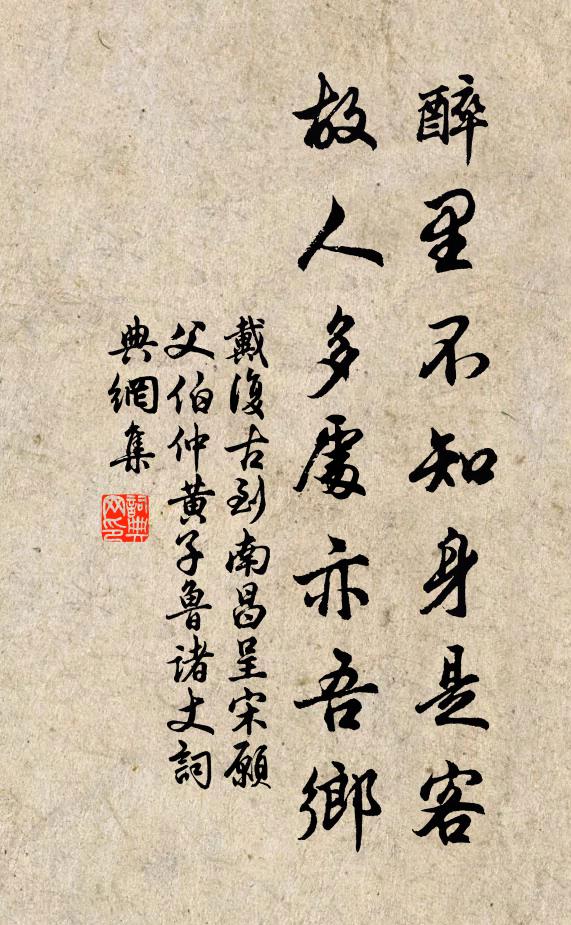 醉里不知身是客
故人多處亦吾鄉
戴復古到南昌呈宋願
父伯仲黃子魯諸丈詞
典網集
詞典
网印